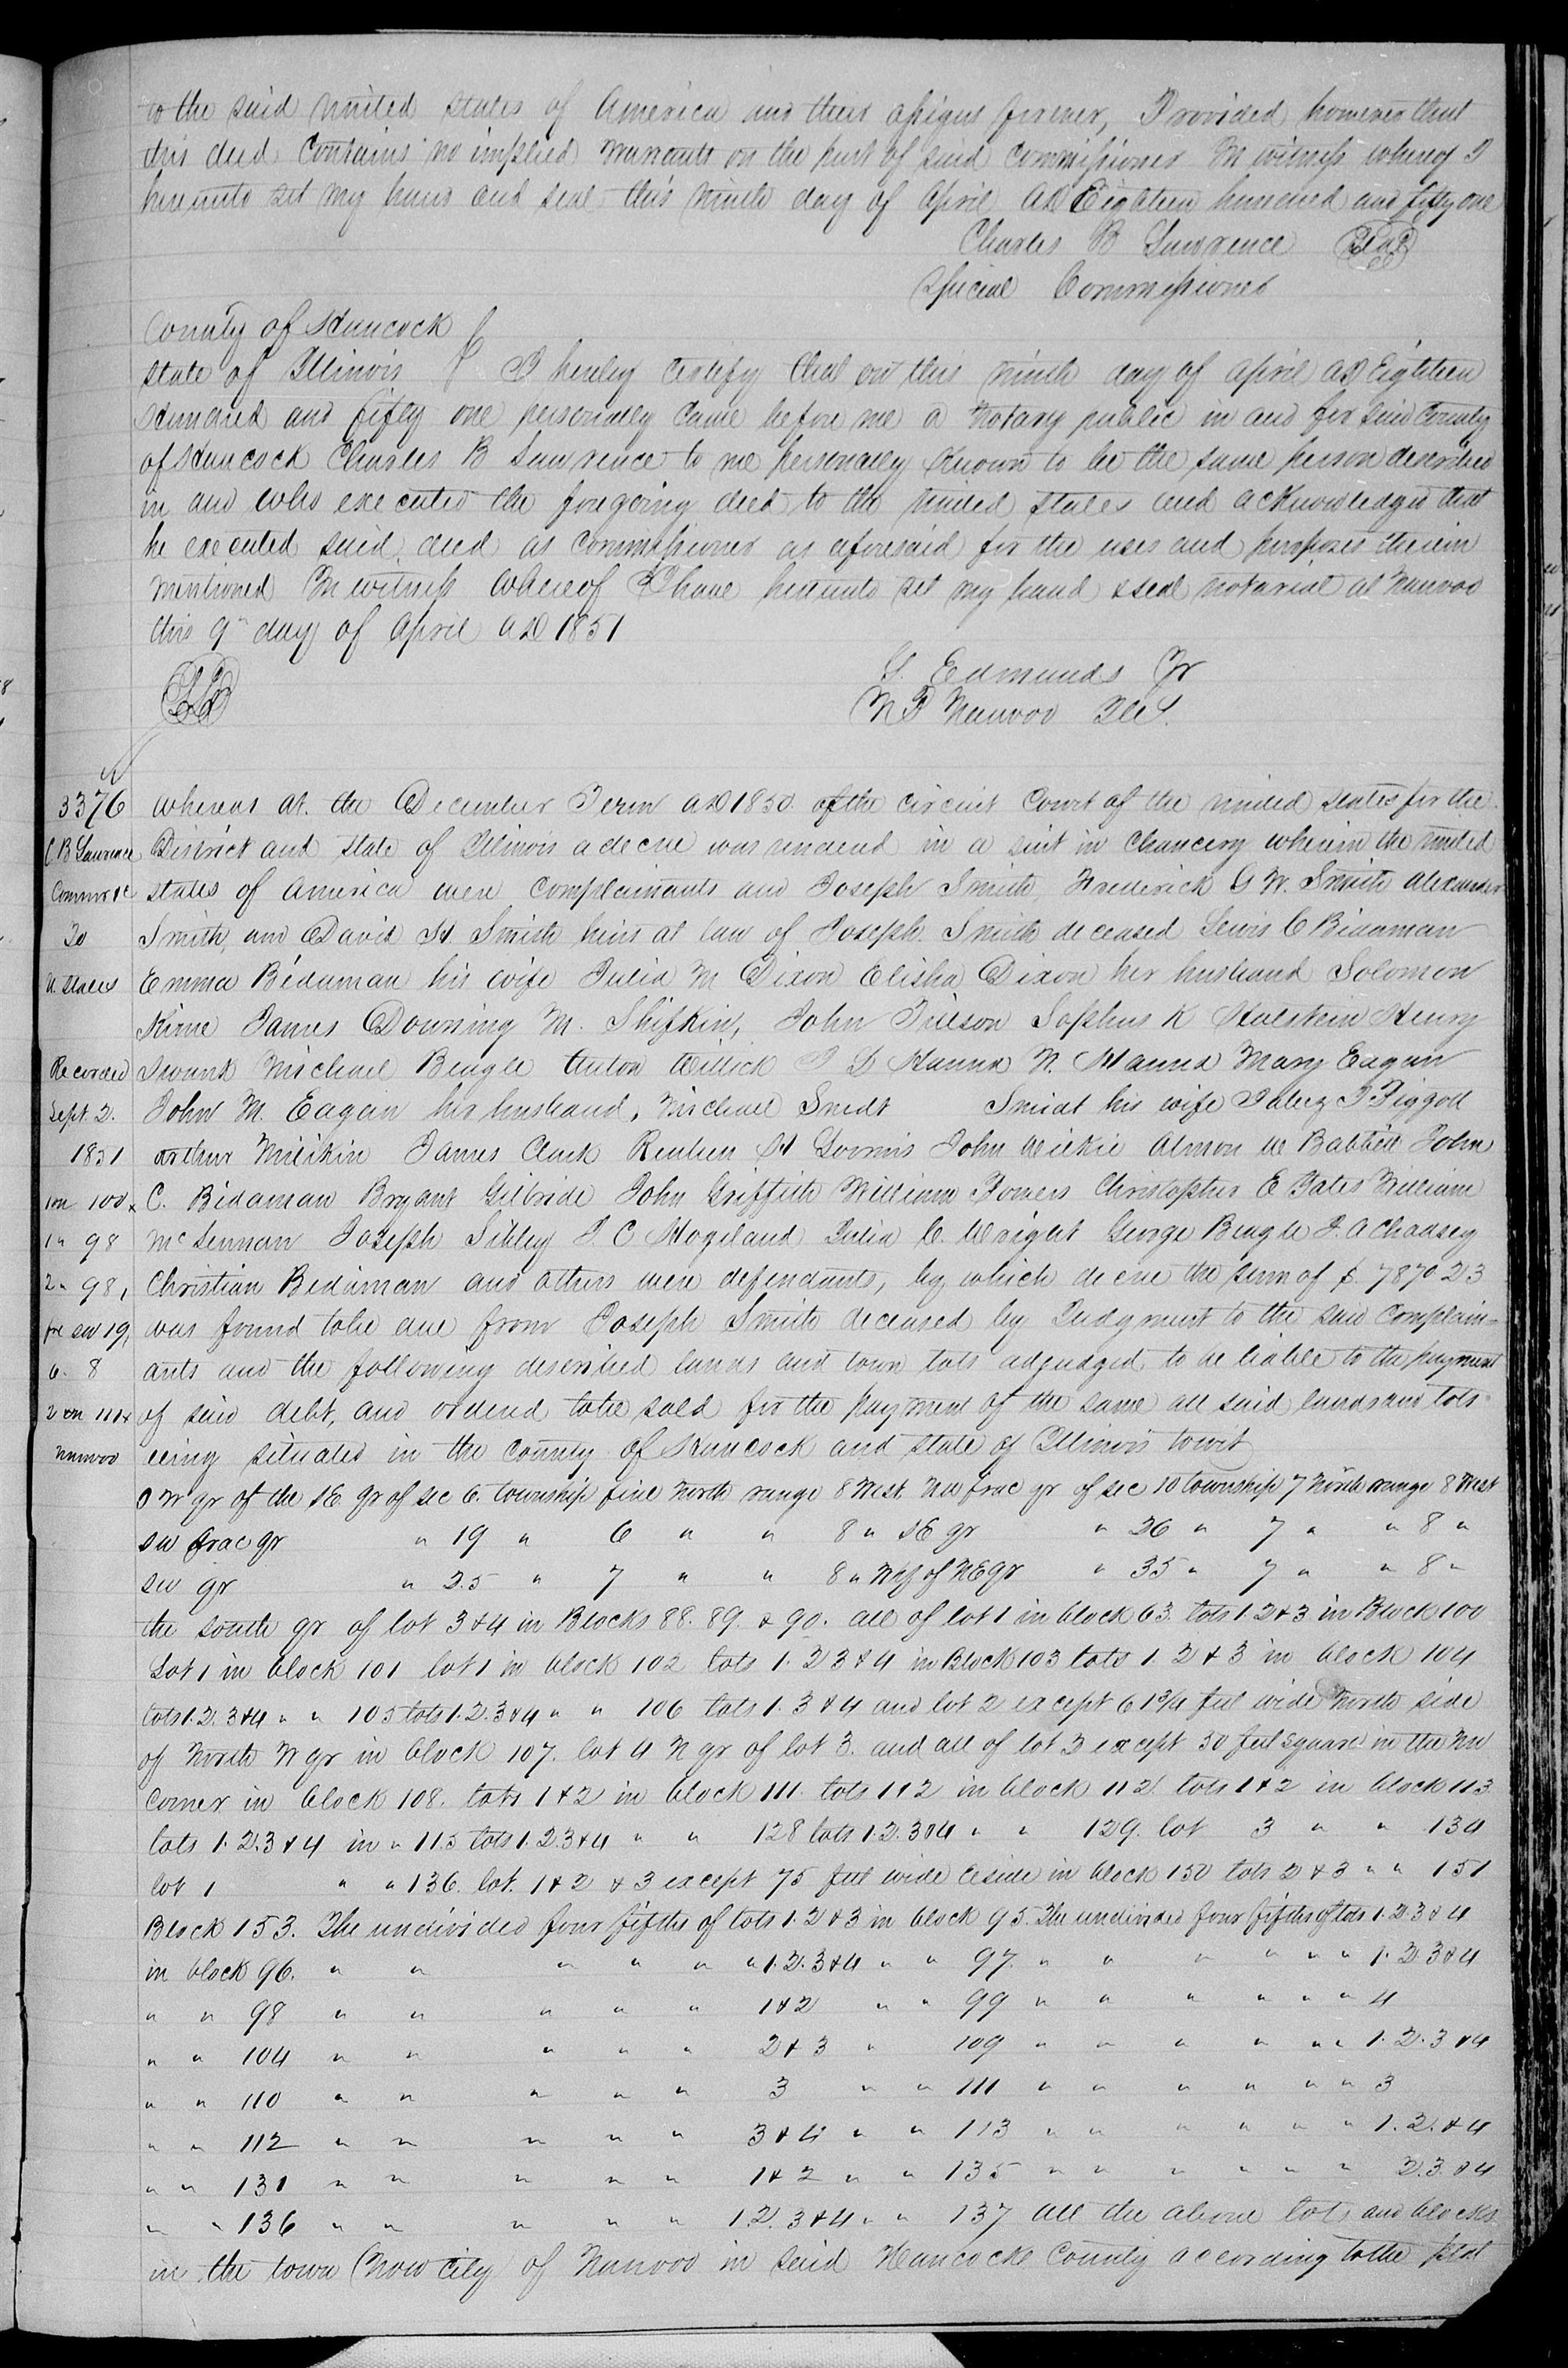 to the said United States of America and their assigns forever, Provided however that
this deed contains no implied warrants on the part of said commissioner In witness whereof I
hereunto set my hand and seal this ninth day of April AD Eighteen hundred and fifty one
Charles B Lawrence Seal
Special Commissioner
County of Hancock
State of Illinois I hereby certify that on this ninth day of April AD Eighteen
Hundred and fifty one personally came before me a Notary public in and for said County
of Hancock Charles B Lawrence to me personally known to be the same person described
in and who executed the foregoing deed to the United States and acknowledged that
he executed said deed as commissioner as aforesaid for the uses and purposes therein
mentioned In witness whereof I have hereunto set my hand & seal notarial at Nauvoo
this 9th day of April AD 1851
G. Edmunds Jr
LS
N P Nauvoo Ills.
3376 whereas at the December Term AD 1850 of the circuit Court of the United States for the
C B Lawrence District and state of Illinois a decree was rendered in a suit in Chancery wherein the United
Commr &c States of America were complainants and Joseph Smith, Frederick G W. Smith Alexander
To Smith, and David H. Smith heirs at law of Joseph Smith deceased Lewis C Bidaman
U. States Emma Bidaman his wife Julia M Dixon Elisha Dixon her husband Solomon
James Downing M. Shifkin, John Tilson Sophus K Holstein Henry
Recorded Swank Michael Beagle Anton J D Hanna N. Hanna Mary Eagan
Sept 2. John M. Eagan her husband, Michael Smidt Smidt his wife Jabez J Piggott
1851 Arthur Milikin James Clark Reuben H Loomis John Wickie Almon W Babbitt John
100 C. Bidaman Bryant Gilbride John Griffith William Powers Christopher E Yates William
1 " 98 McLennan Joseph Sibley J. C Hogeland Julia C. Wright George Beagle J. A Chadsey
2 " 98, Christian Bidaman and others were defendants, by which decree the sum of $ 7870 23
fre sw 19, was found to be due from Joseph Smith deceased by Judgment to the said Complain=
6. 8 ants and the following described lands and town lots adjudged to be liable to the payment
2 on 111 of said debt, and ordered to be sold for the payment of the same all said lands and lots
Nauvoo being situated in the County of Hancock and state of Illinois to wit
S W qr of the SE qr of sec 6. township five North range 8 West. NW frac qr of sec 10 township 7 North range 8 West
SW frac qr " 19 " 6 " " 8 " SE qr " 26 " 7 " " 8 "
SW qr " 25 " 7 " " 8 " W hf of NE qr " 35 " 7 " " 8 "
the south qr of lot 3 & 4 in Blocks 88. 89. & 90. all of lot 1 in block 63. lots 1. 2 & 3 in Block 100
Lot 1 in block 101 lot 1 in block 102 lots 1. 2 3 & 4 in Block 103 lots 1. 2 & 3 in block 104
lots 1. 2. 3 & 4 " " 105 lots 1. 2. 3 & 4 " " 106 lots 1. 3 & 4 and lot 2 except 61 3/4 feet wide North side
of North W qr in block 107. lot 4 N qr of lot 3. and all of lot 2 except 30 feet square in the NW
Corner in block 108. lots 1 & 2 in block 111. lots 1 & 2 in block 112. lots 1 & 2 in block 113
lots 1. 2. 3 & 4 in " 115 lots 1. 2. 3 & 4 " " 128 lots 1. 2. 3 & 4 " " 129. lot 3 " " 130
lot 1 " " 136. lot. 1 & 2 & 3 except 75 feet wide E side in block 150 lots 2 & 3 " " 151
Block 153. The undivided four fifths of lots 1. 2 & 3 in block 95. The undivided four fifths of lots 1. 2. 3 & 4
in block 96. " " " " " " 1. 2. 3 & 4 " " 97. " " " " " " 1. 2 3 & 4
" " 98 " " " " " 1 & 2 " " 99 " " " " " " 4
" " 104 " " " " " 2 & 3 " 109 " " " " " " 1. 2. 3 & 4
" " 110 " " " " " 3 " " 111 " " " " " " 3
" " 112 " " " " " 3 & 4 " " 113 " " " " " " 1. 2. & 4
" " 131 " " " " " 1 & 2 " " 135 " " " " " " 2. 3. & 4
" " 136 " " " " " 1. 2. 3 & 4 " " 137 all the above lots and blocks
in the town (now city) of Nauvoo in said Hancock County according to the plat